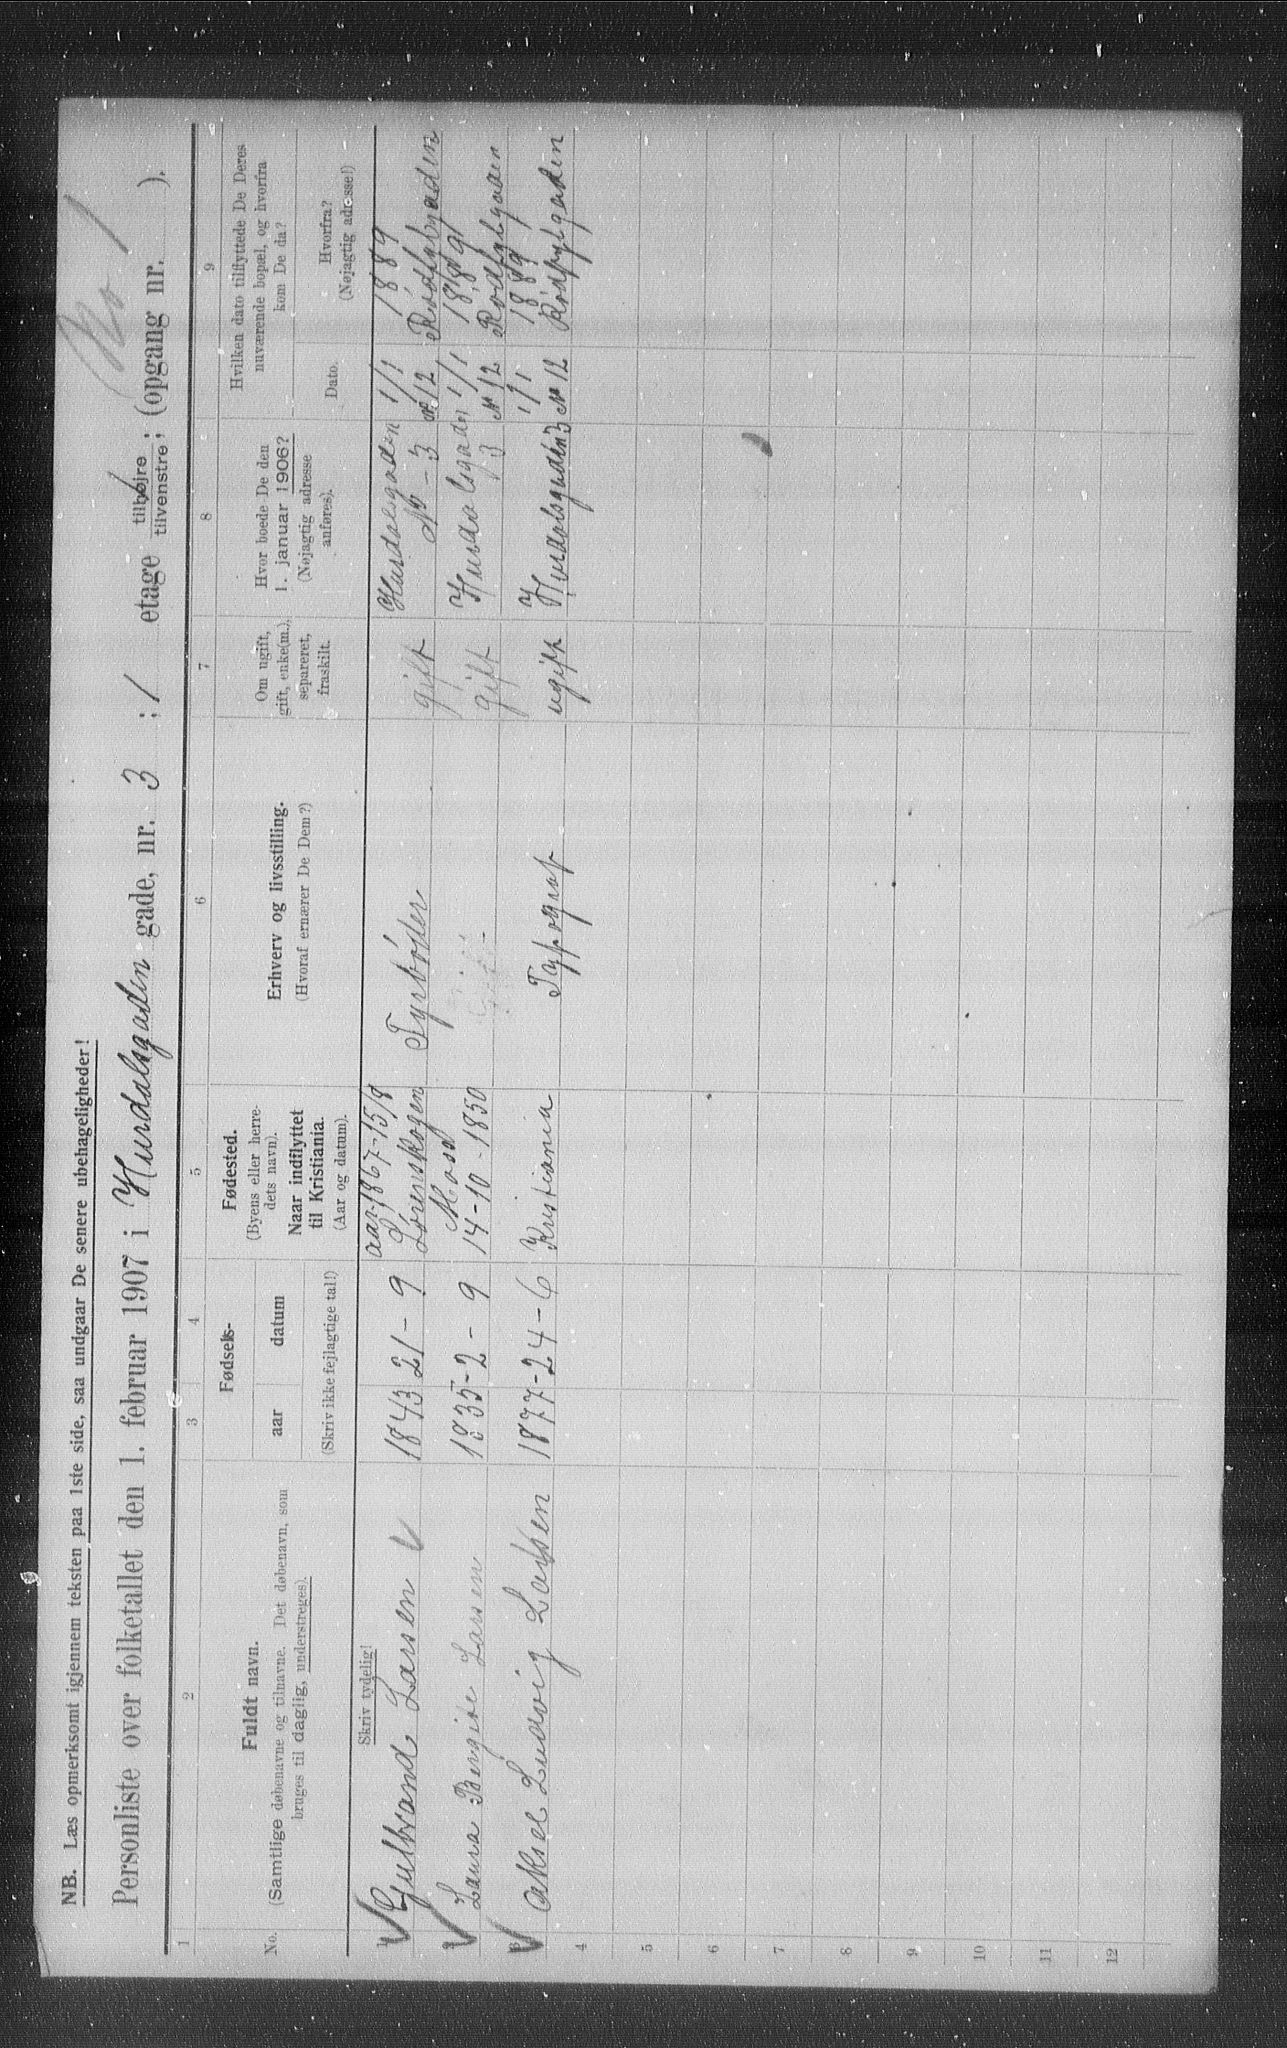 No 1
NB. Læs opmerksomt igjennem teksten paa 1ste side, saa undgaar De senere ubehageligheder!
Personliste over folketallet den 1. februar 1907 i Hurdalsgaden gade, nr. 3 ; 1 etage tilhøjre tilvenstre ; (opgang nr. ).
1 2 3 4 5 6 7 8 9
No.
Fuldt navn.
(Samtlige døbenavne og tilnavne. Det døbenavn, som
bruges til daglig, understreges).
Fødsels-
aar datum
(Skriv ikke fejlagtige tal!)
Fødested.
(Byens eller herre-
dets navn).
Naar indflyttet
til Kristiania.
(Aar og datum).
Erhverv og livsstilling.
(Hvoraf ernærer De Dem?)
Om ugift,
gift, enke(m.),
separeret,
fraskilt.
Hvor boede De den
1. januar 1906?
(Nøjagtig adresse
anføres).
Hvilken dato tilflyttede De Deres
nuværende bopæl, og hvorfra
kom De da?
Dato.
Hvorfra?
(Nøjagtig adresse!)
Skriv tydelig!
aar-1867-15/8 Hurdalsgaden 1/1 1889
1 Gulbrand Larsen 1843 21-9 Lørenskogen Fyrbøder gift No-3 No 12 Rødfylgaden
Moss Hurdalsgaden 1/1 1889
2 Laura Bergite Larsen 1835-2-9 14-10-1850 gift 3 No 12 Rødfylgaden
1/1 1889
3 Aksel Ludvig Larsen 1877-24-6 Kristiania Typograf ugift Hurdalsgaden 3 No 12 Rødfylgaden
4
5
6
7
8
9
10
11
12